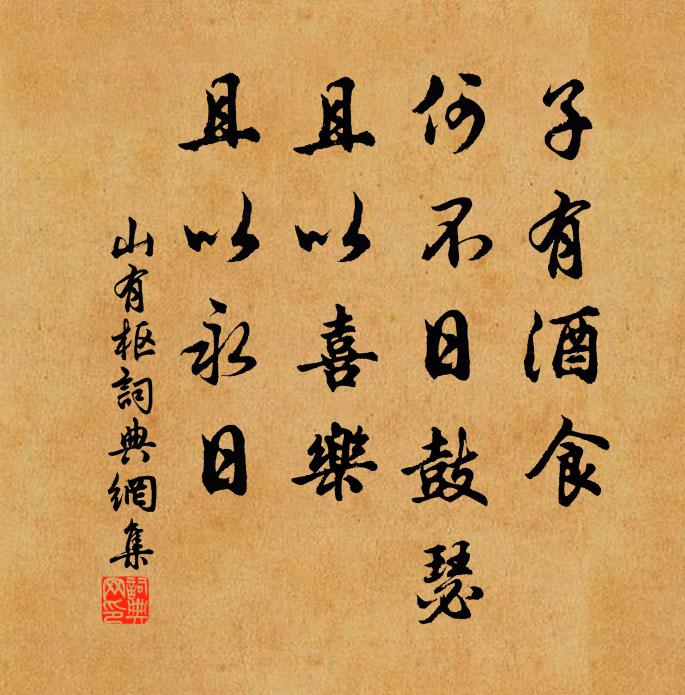 子有酒食
何不日鼓瑟
且以喜樂
且以永日
山有枢詞典網集
詞典网印